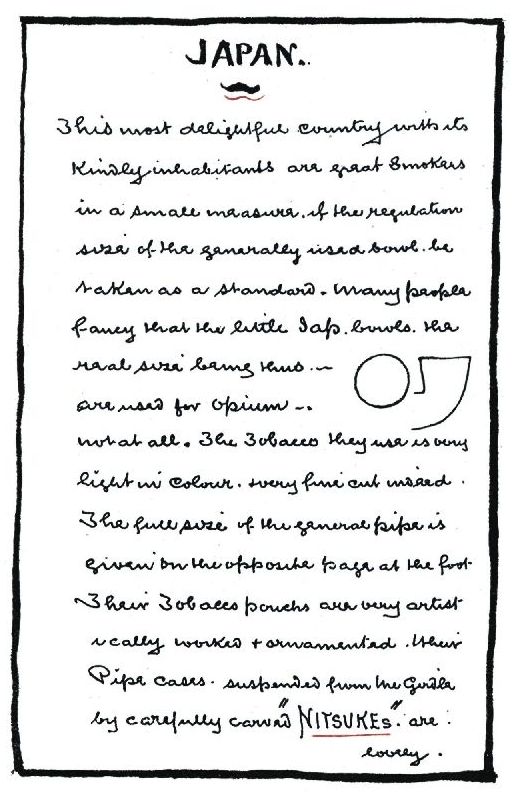 JAPAN.
This most delightful country with its
Kindly inhabitants are great Smokers
in a small measure. if the regulation
size of the generally used bowl. be
taken as a standard. Many people
fancy that the little Jap. bowls. the
real size being thus. —
are used for Opium —.
not at all. The Tobacco they use is very
light in colour. + very fine cut indeed.
The full size of the general pipe is
given on the opposite page at the foot
Their Tobacco pouchs are very artist
ically worked + ornamented. Their
Pipe cases. suspended from the Girdle
by carefully carved "NITSUKEs". are
lovely.